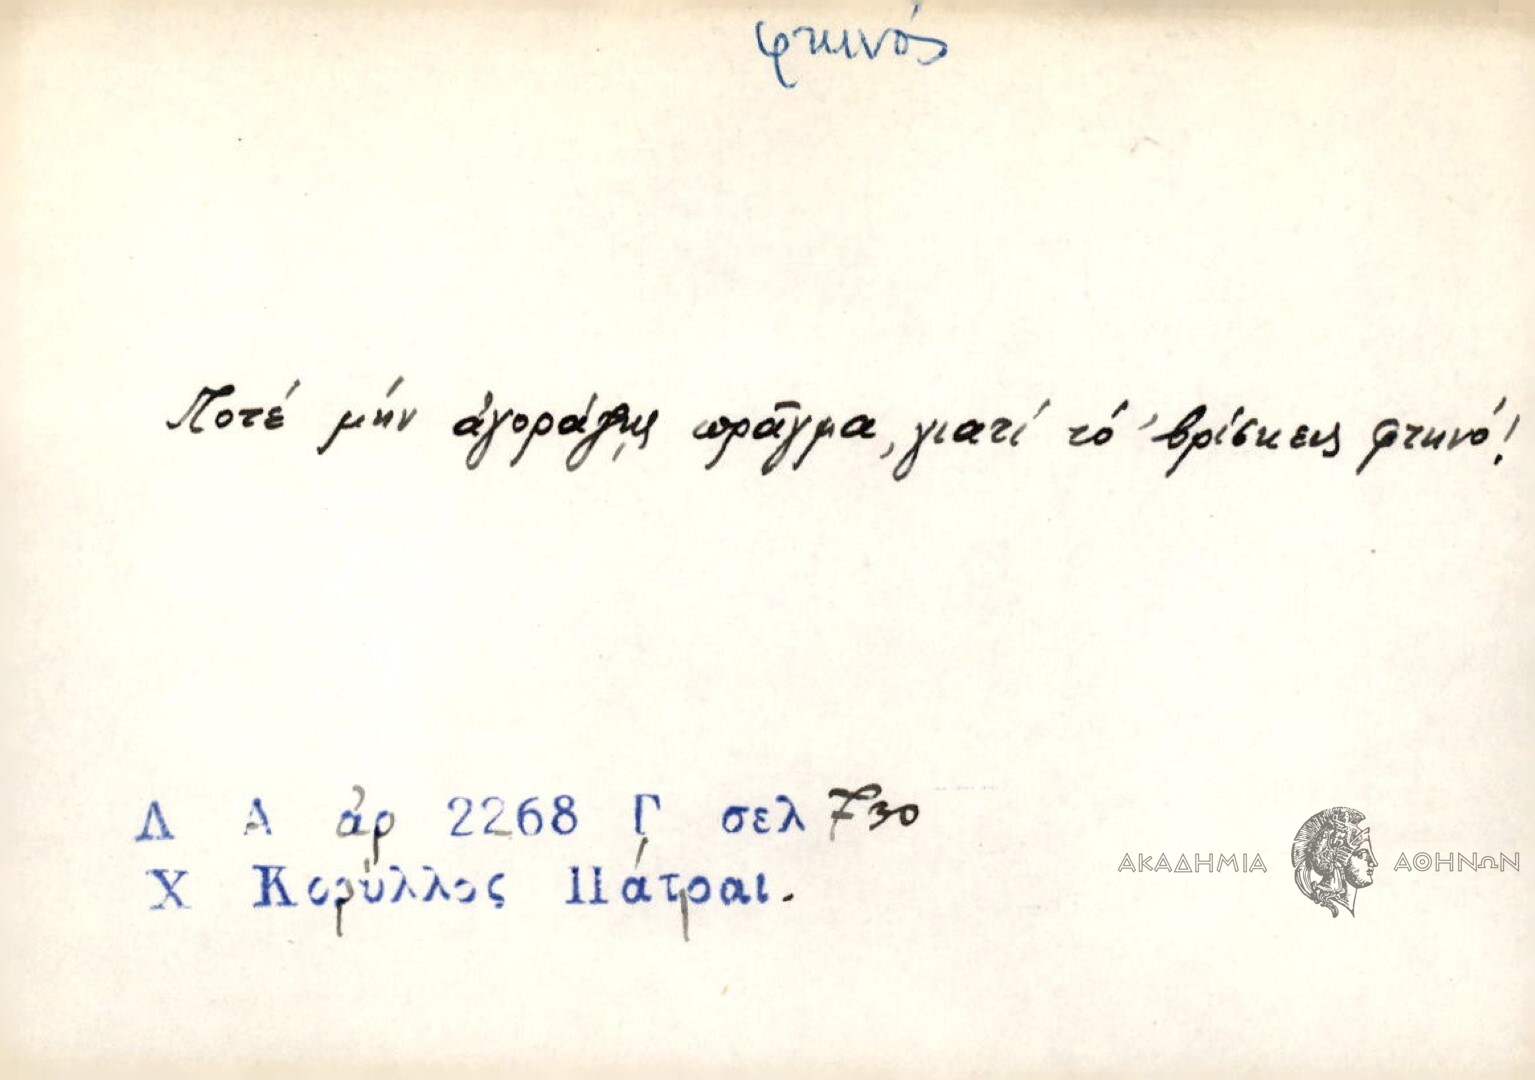 φτηνός
Ποτέ μήν ἀγοράζῃς πρᾶγμα, γιατί τό 'βρίσκεις φτηνό!
Λ Α ἀρ 2268 Γ σελ 730
Χ Κορύλλος Πάτραι.
ΑΚΑΔΗΜΙΑ ΑΘΗΝΩΝ